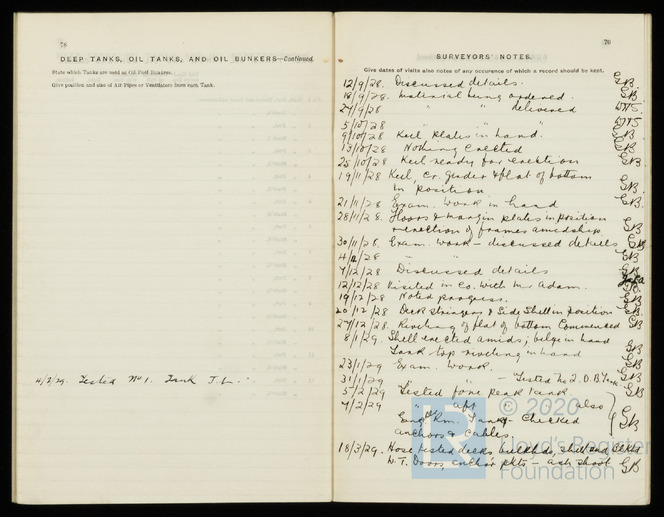 78
DEEP TANKS, OIL TANKS, AND OIL BUNKERS—Continued.
State which Tanks are used as Oil Fuel Bunkers.
Give position and size of Air Pipes or Ventilators from each Tank.
4/2/29. Tested No 1. Tank T.L.
SURVEYORS' NOTES.
Give dates of visits also notes of any occurence of which a record should be kept.
12/9/28. Discussed details. GB.
18/9/28. Material being ordered. GB.
24/9/28 " " delivered
5/10/28 " " "
9/10/28 Keel Plates in hand. GB
15/10/28 Nothing Erected GB
25/10/28 Keel ready for erection GB
19/11/28 Keel, Cr. Girder & flat of bottom
in position GB
21/11/28 Exam. work in hand GB.
28/11/28. Floors & margin plates in position
& erection of frames amidships GB
30/11/28. Exam. work - discussed details GB
" " GB
7/12/28 Discussed details GB
12/12/28 Visited in Co. with Mr Adam.
19/12/28 Noted progress. GB
20/12/28 Deck stringers & Side Shell in position GB.
27/12/28. Riveting of flat of bottom Commenced GB
8/1/29. Shell erected amids; bilge in hand
Tank top riveting in hand GB
23/1/29 Exam. work. GB
31/1/29 " " - Tested No 2. D.B. Tank GB
5/2/29 Tested fore Peak Tank.
7/2/29 " aft " " also
Eng Rm. Tank Checked
anchors & Cables. GB
18/3/29. Hose tested decks bulkheads, shell and
W.T. Doors, anchor - ash shoot GB
© 2020
Lloyd's Register
Foundation